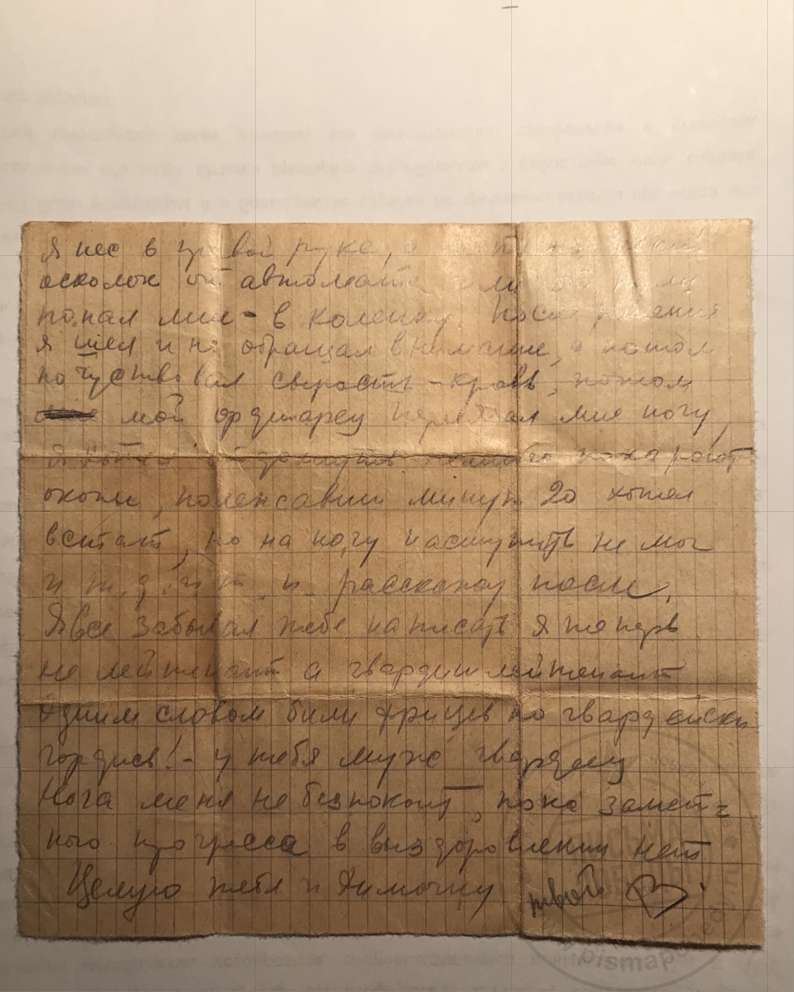 Я нес в правой руке, а
осколок от автомата
попал мне - в коленку. После ранения
я шел и не обращал внимание, а потом
почуствовал сырость - кровь, потом
мой ординарец перевязал мне ногу,
окопы, полежавши минут 20 хотел
встать, но на ногу наступить не мог
и т.д. и т. п. расскажу после.
Я все забывал тебе написать я теперь
не лейтенант а гвардии лейтенант
Одним словом били фрицев по гвардейски
гордись! - у тебя муж гвардеец
Нога меня не безпокоит, пока замет=
ного прогресса в выздоровлении нет
Целую тебя и Димочку твой В.
pismapobed